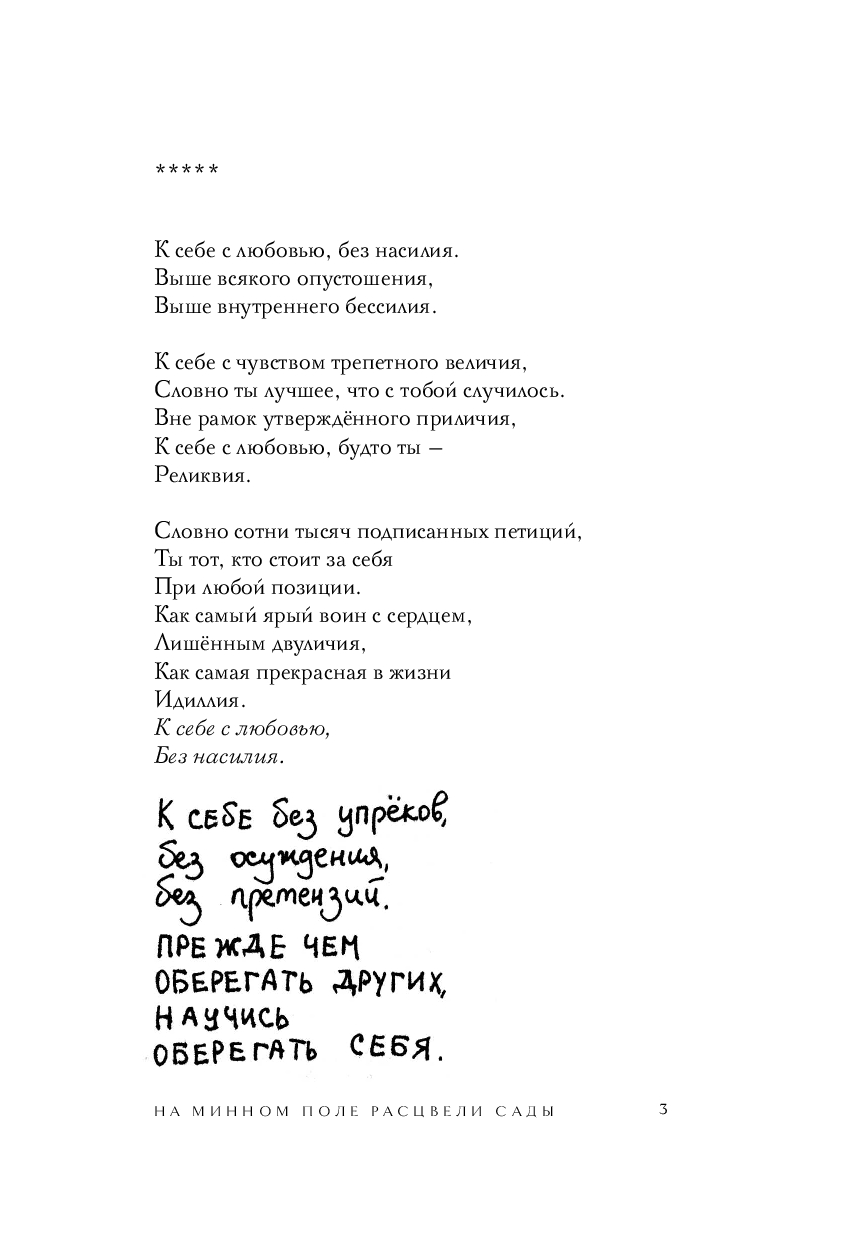 *****
К себе с любовью, без насилия.
Выше всякого опустошения,
Выше внутреннего бессилия.
К себе с чувством трепетного величия,
Словно ты лучшее, что с тобой случилось.
Вне рамок утверждённого приличия,
К себе с любовью, будто ты —
Реликвия.
Словно сотни тысяч подписанных петиций,
Ты тот, кто стоит за себя
При любой позиции.
Как самый ярый воин с сердцем,
Лишённым двуличия,
Как самая прекрасная в жизни
Идиллия.
К себе с любовью,
Без насилия.
К СЕБЕ без упрёков,
без осуждения,
без претензий.
ПРЕЖДЕ ЧЕМ
ОБЕРЕГАТЬ ДРУГИХ,
НАУЧИСЬ
ОБЕРЕГАТЬ СЕБЯ.
НА МИННОМ ПОЛЕ РАСЦВЕЛИ САДЫ 3